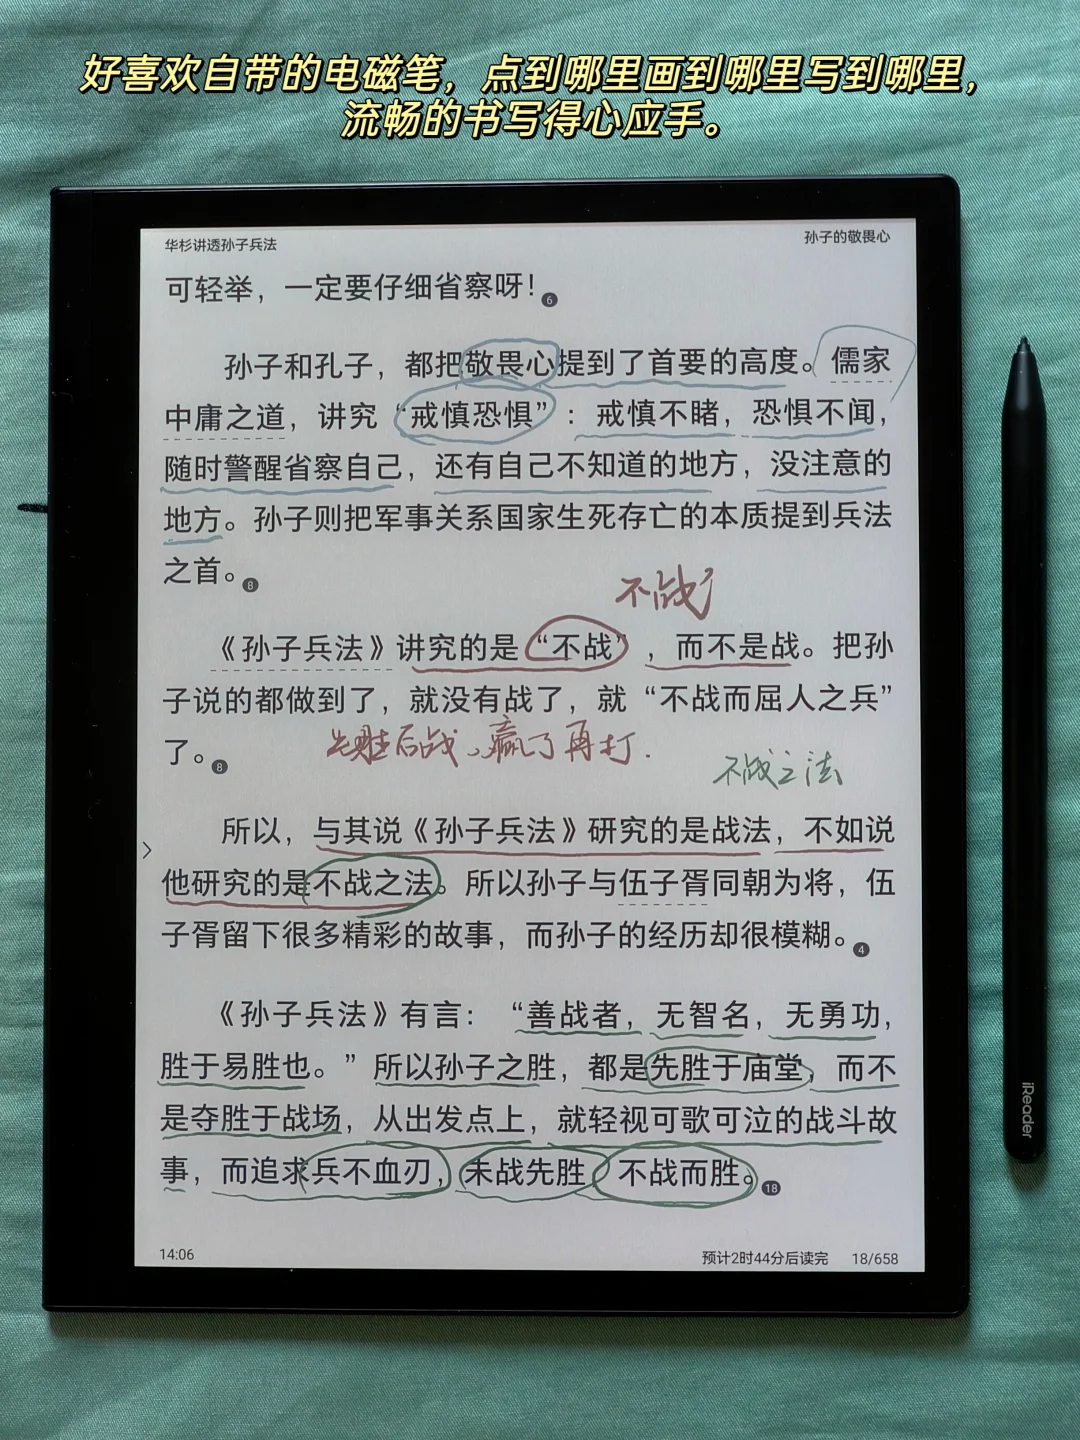 好喜欢自带的电磁笔，点到哪里画到哪里写到哪里，
流畅的书写得心应手。
华杉讲透孙子兵法
孙子的敬畏心
可轻举，一定要仔细省察呀！6
孙子和孔子，都把敬畏心提到了首要的高度。儒家
中庸之道，讲究“戒慎恐惧”：戒慎不睹，恐惧不闻，
随时警醒省察自己，还有自己不知道的地方，没注意的
地方。孙子则把军事关系国家生死存亡的本质提到兵法
之首。8
不战
《孙子兵法》讲究的是“不战”，而不是战。把孙
子说的都做到了，就没有战了，就“不战而屈人之兵”
了。8
先胜后战，赢了再打.
不战之法
所以，与其说《孙子兵法》研究的是战法，不如说
他研究的是不战之法。所以孙子与伍子胥同朝为将，伍
子胥留下很多精彩的故事，而孙子的经历却很模糊。4
《孙子兵法》有言：“善战者，无智名，无勇功，
胜于易胜也。”所以孙子之胜，都是先胜于庙堂，而不
是夺胜于战场，从出发点上，就轻视可歌可泣的战斗故
事，而追求兵不血刃，未战先胜，不战而胜。18
14:06
预计2时44分后读完 18/658
iReader